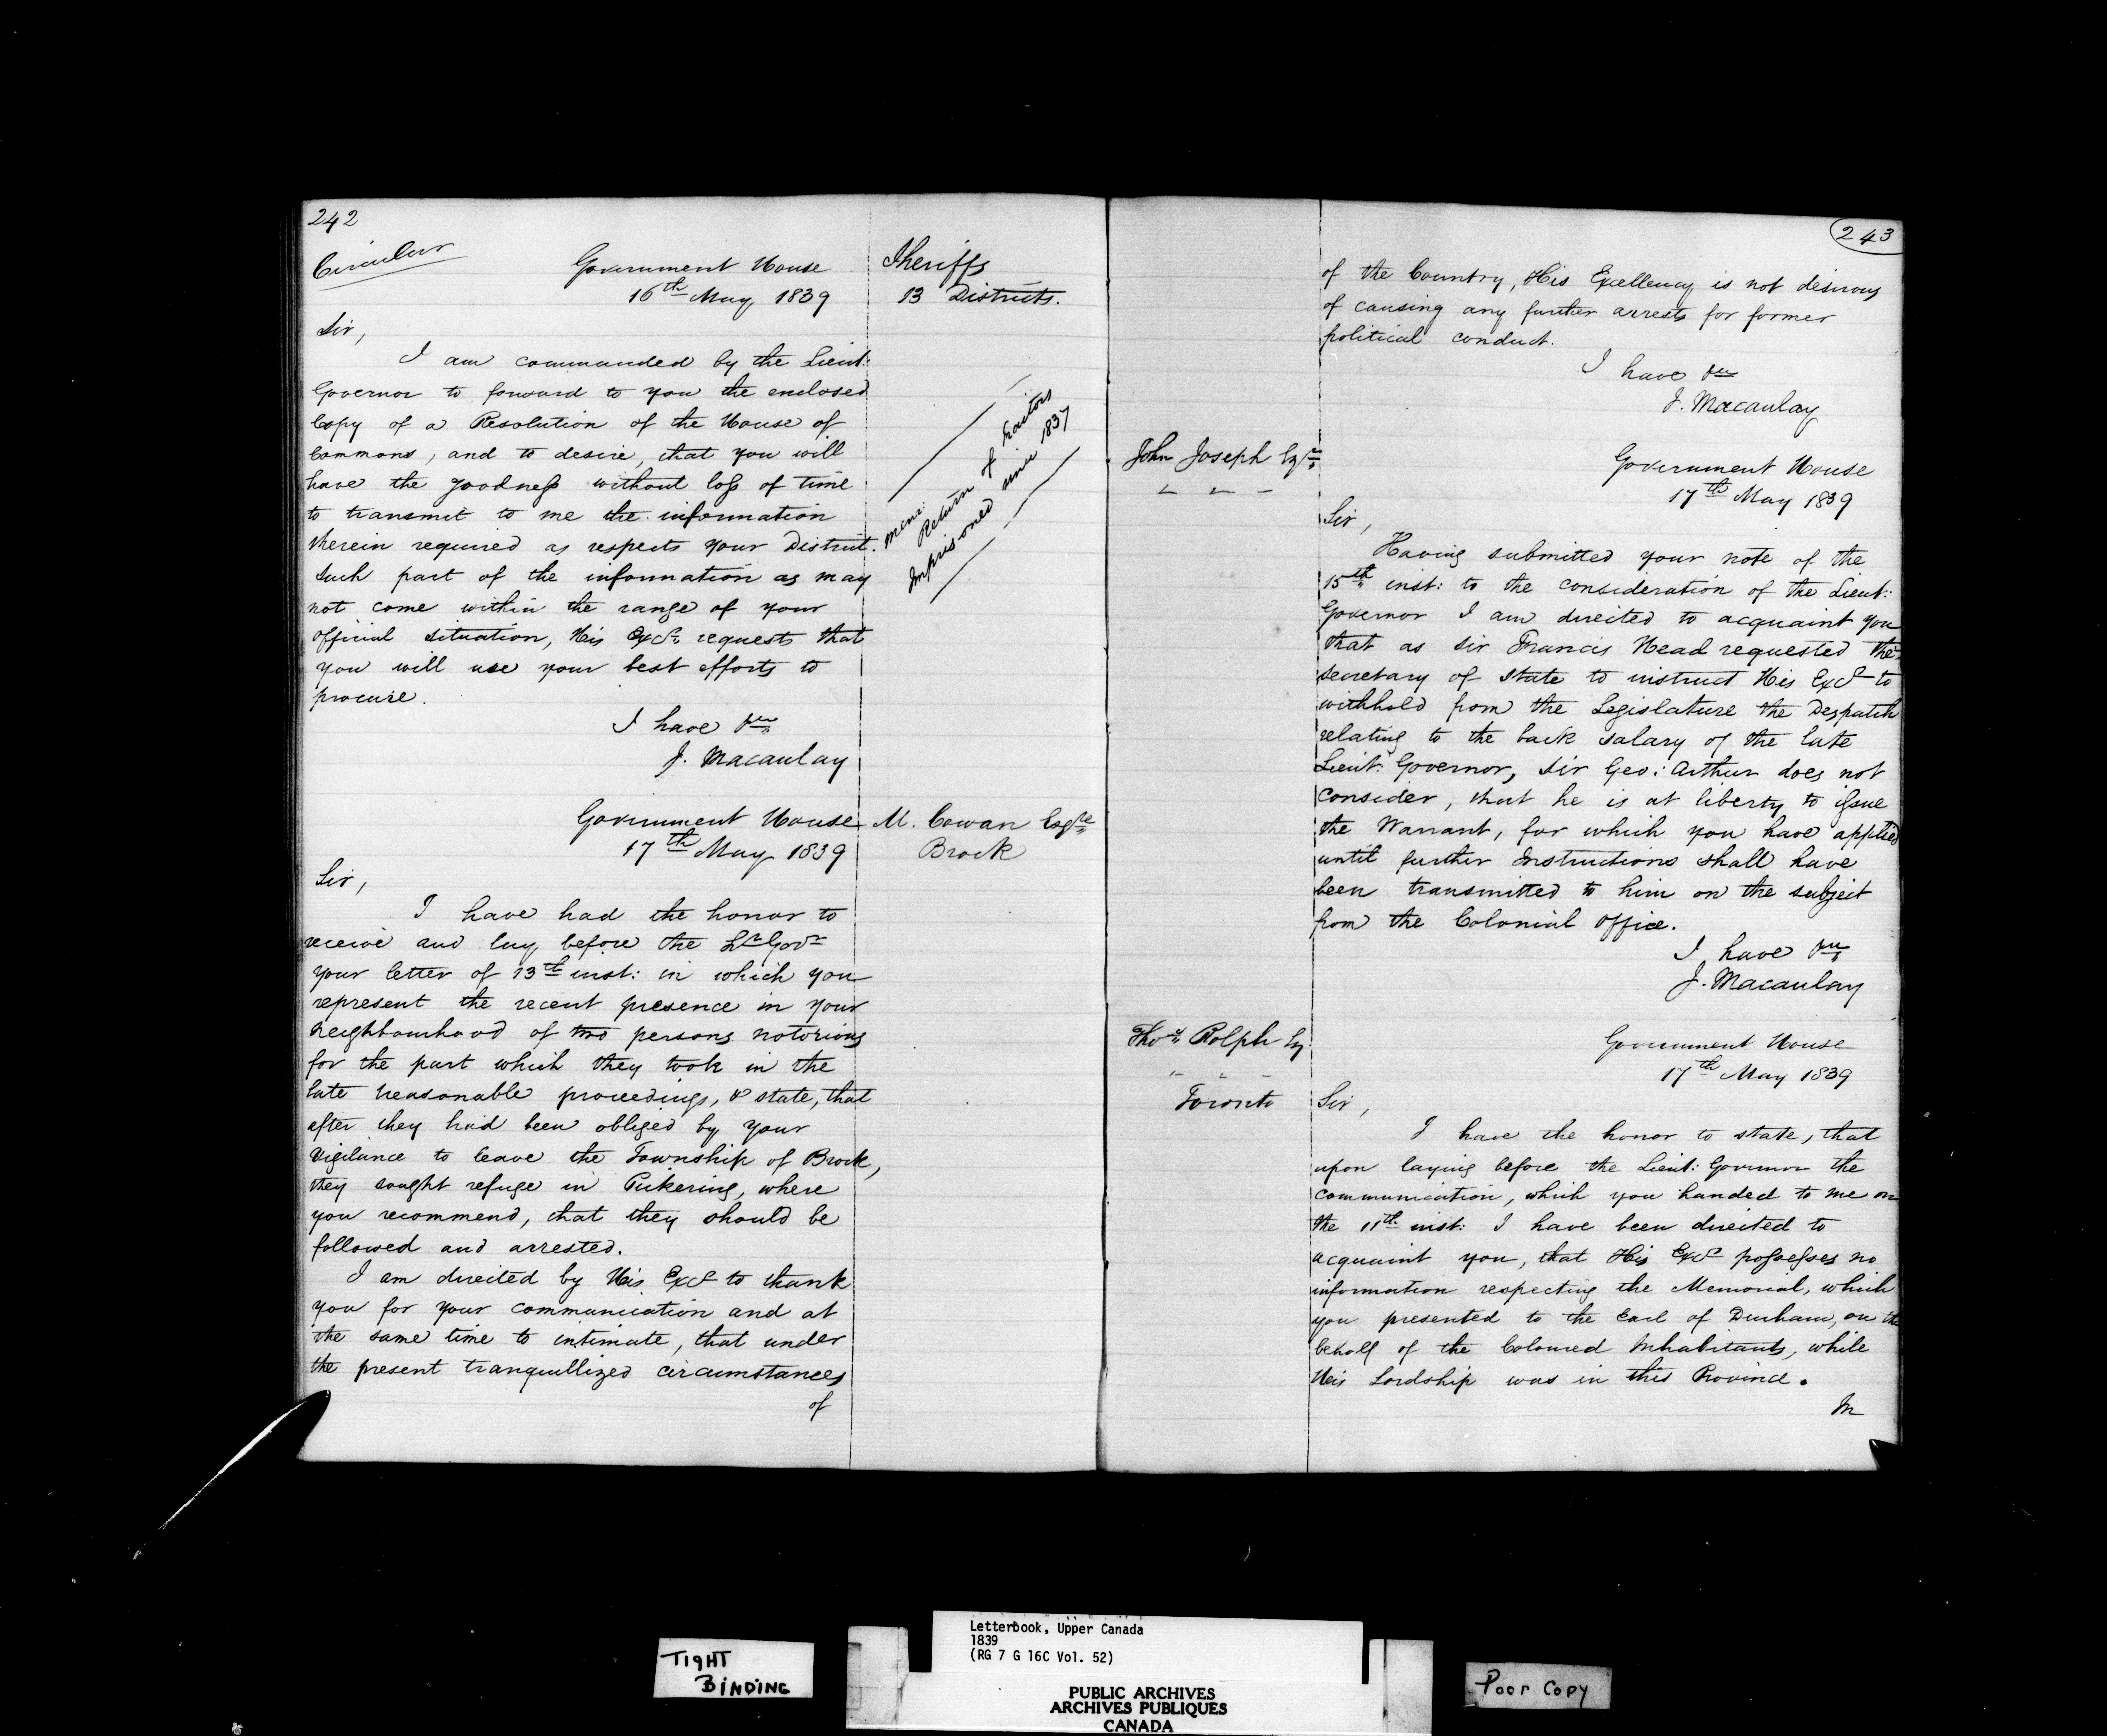 242
Circular
Government House
16th May 1839
Sheriffs
13 Districts.
Sir,
I am commanded by the Lieut:
Governor to forward to you the enclosed
Copy of a Resolution of the House of
Commons, and to desire, that you will
have the goodness without loss of time
to transmit to me the information
therein required as respects your District.
Such part of the information as may
not come within the range of your
official situation, His Excy requests that
you will use your best efforts to
procure.
I have &c
J. Macaulay
Mem:
Return of traitors
Imprisoned since 1837
Government House
17th May 1839
M. Cowan Esqre
Brock
Sir,
I have had the honor to
receive and lay before the Lt Govr
your letter of 13th inst: in which you
represent the recent presence in your
neighbourhood of two persons notorious
for the part which they took in the
late treasonable proceedings, & state, that
after they had been obliged by your
vigilance to leave the Township of Brock,
they sought refuge in Pickering, where
you recommend, that they should be
followed and arrested.
I am directed by His Excy to thank
you for your communication and at
the same time to intimate, that under
the present tranquillized circumstances
of
243
of the Country, His Excellency is not desirous
of causing any further arrests for former
political conduct.
I have &c
J. Macaulay
John Joseph Esqr
Government House
17th May 1839
Sir,
Having submitted your note of the
15th inst: to the consideration of the Lieut:
Governor I am directed to acquaint you
that as Sir Francis Head requested the
Secretary of State to instruct His Excy to
withhold from the Legislature the Despatch
relating to the back salary of the late
Lieut: Governor, Sir Geo: Arthur does not
consider, that he is at liberty to issue
the Warrant, for which you have applied
until further Instructions shall have
been transmitted to him on the subject
from the Colonial Office.
I have &c
J. Macaulay
Thos Rolph Esq
Toronto
Government House
17th May 1839
Sir,
I have the honor to state, that
upon laying before the Lieut: Governor the
communication, which you handed to me on
the 11th inst: I have been directed to
acquaint you, that His Excy possesses no
information respecting the Memorial, which
you presented to the Earl of Durham, on the
behalf of the Coloured Inhabitants, while
His Lordship was in this Province.
In
TIGHT
BINDING
Letterbook, Upper Canada
1839
(RG 7 G 16C Vol. 52)
PUBLIC ARCHIVES
ARCHIVES PUBLIQUES
CANADA
Poor Copy